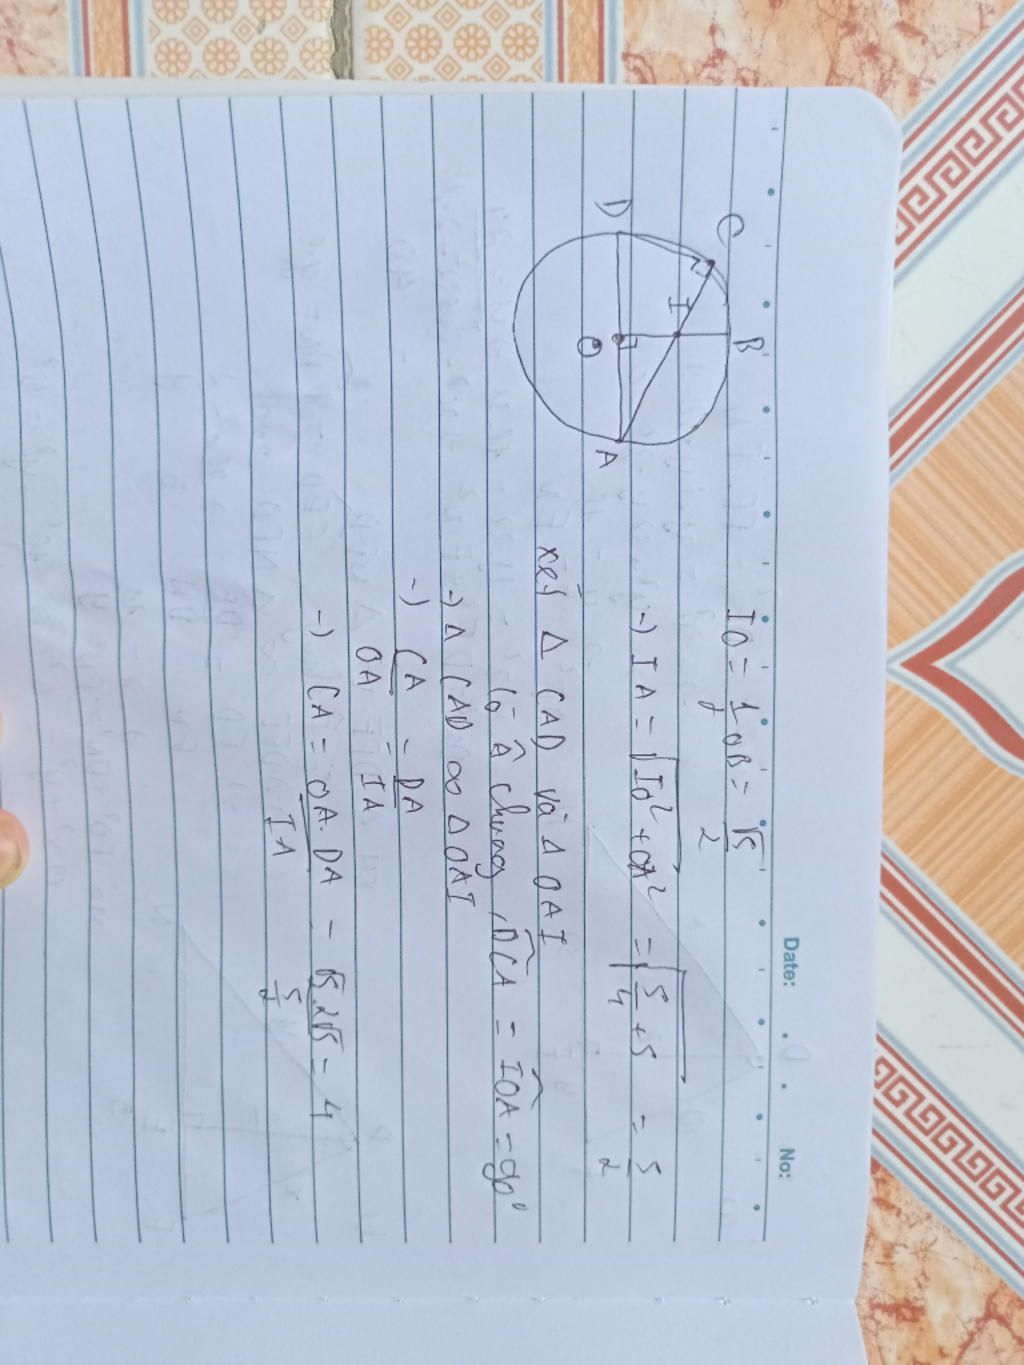 Date: No:
IO = 1/2 OB = √5/2
-) IA = √(IO² + OA²) = √(5/4 + 5) = 5/2
xét Δ CAD và Δ OAI
Có Â chung, DCA = IOA = 90°
-) Δ CAD ∞ Δ OAI
-) CA/OA = DA/IA
-) CA = OA.DA/IA = √5.2√5/(5/2) = 4
D
C
I
B
O
A